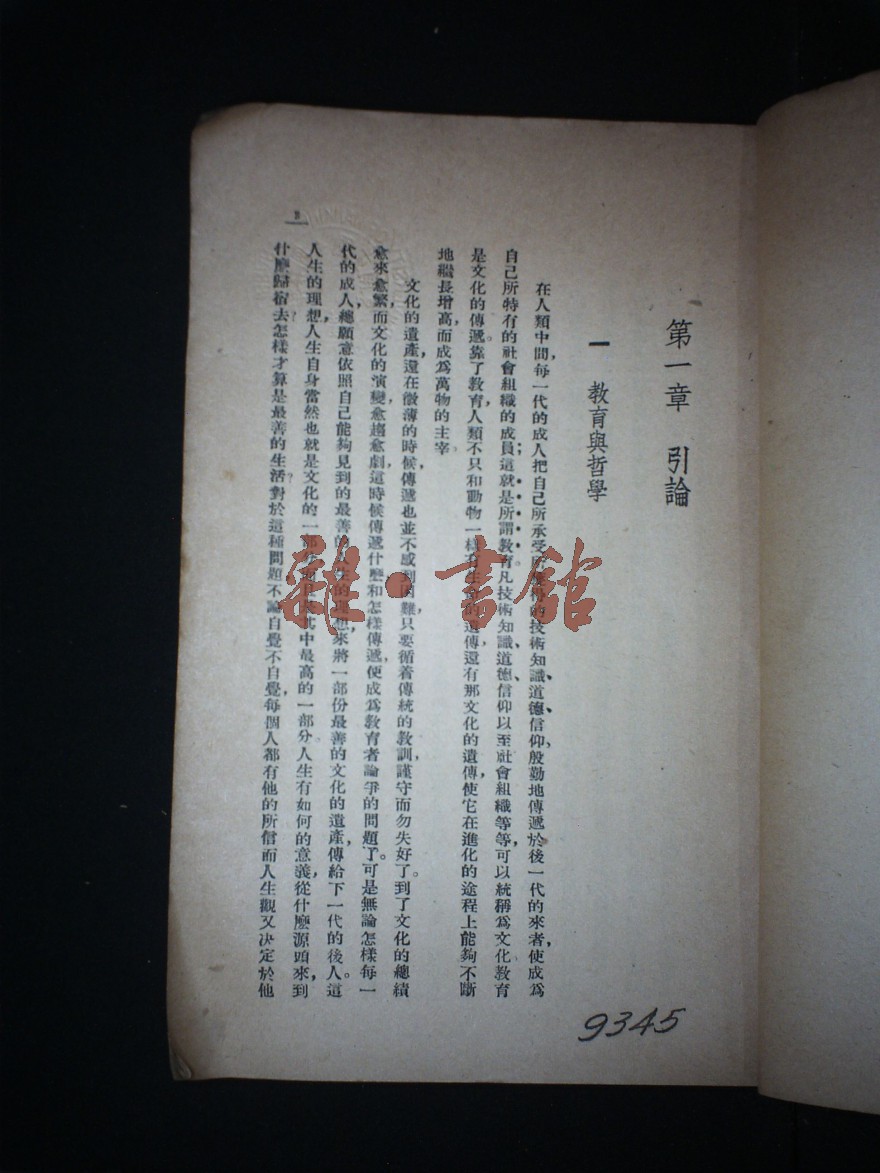 第一章 引論
一 教育與哲學
在人類中間,每一代的成人把自己所承受所獲得的技術、知識、道德、信仰,殷勤地傳遞於後一代的來者,使成為
自己所特有的社會組織的成員;這就是所謂教育。凡技術、知識、道德、信仰以至社會組織等等,可以統稱為文化,教育
是文化的傳遞。靠了教育,人類不只和動物一樣有生命的遺傳,還有那文化的遺傳,使它在進化的途程上能夠不斷
地繼長增高,而成為萬物的主宰。
文化的遺產,還在微薄的時候,傳遞也並不感到困難,只要循着傳統的教訓,謹守而勿失好了。到了文化的總績
愈來愈繁,而文化的演變愈趨愈劇,這時候傳遞什麼和怎樣傳遞,便成為教育者論爭的問題了。可是無論怎樣,每一
代的成人,總願意依照自己能夠見到的最善的人生的理想,來將一部份最善的文化的遺產,傳給下一代的後人。這
人生的理想,人生自身當然也就是文化的一部分,而且是其中最高的一部分。人生有如何的意義,從什麼源頭來,到
什麼歸宿去?怎樣才算是最善的生活?對於這種問題,不論自覺不自覺,每個人都有他的所信,而人生觀又決定於他
雜·書館
9345